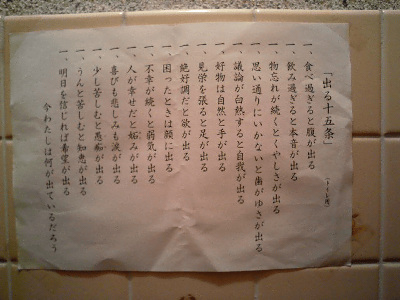 「出る十五条」 (トイレ用)
一、食べ過ぎると腹が出る
一、飲み過ぎると本音が出る
一、物忘れが続くとくやしさが出る
一、思い通りにいかないと歯がゆさが出る
一、議論が白熱すると自我が出る
一、好物は自然と手が出る
一、見栄を張ると足が出る
一、絶好調だと欲が出る
一、困ったときは顔に出る
一、不幸が続くと弱気が出る
一、人が幸せだと妬みが出る
一、喜びも悲しみも涙が出る
一、少し苦しむと愚痴が出る
一、うんと苦しむと知恵が出る
一、明日を信じれば希望が出る
今わたしは何が出ているだろう